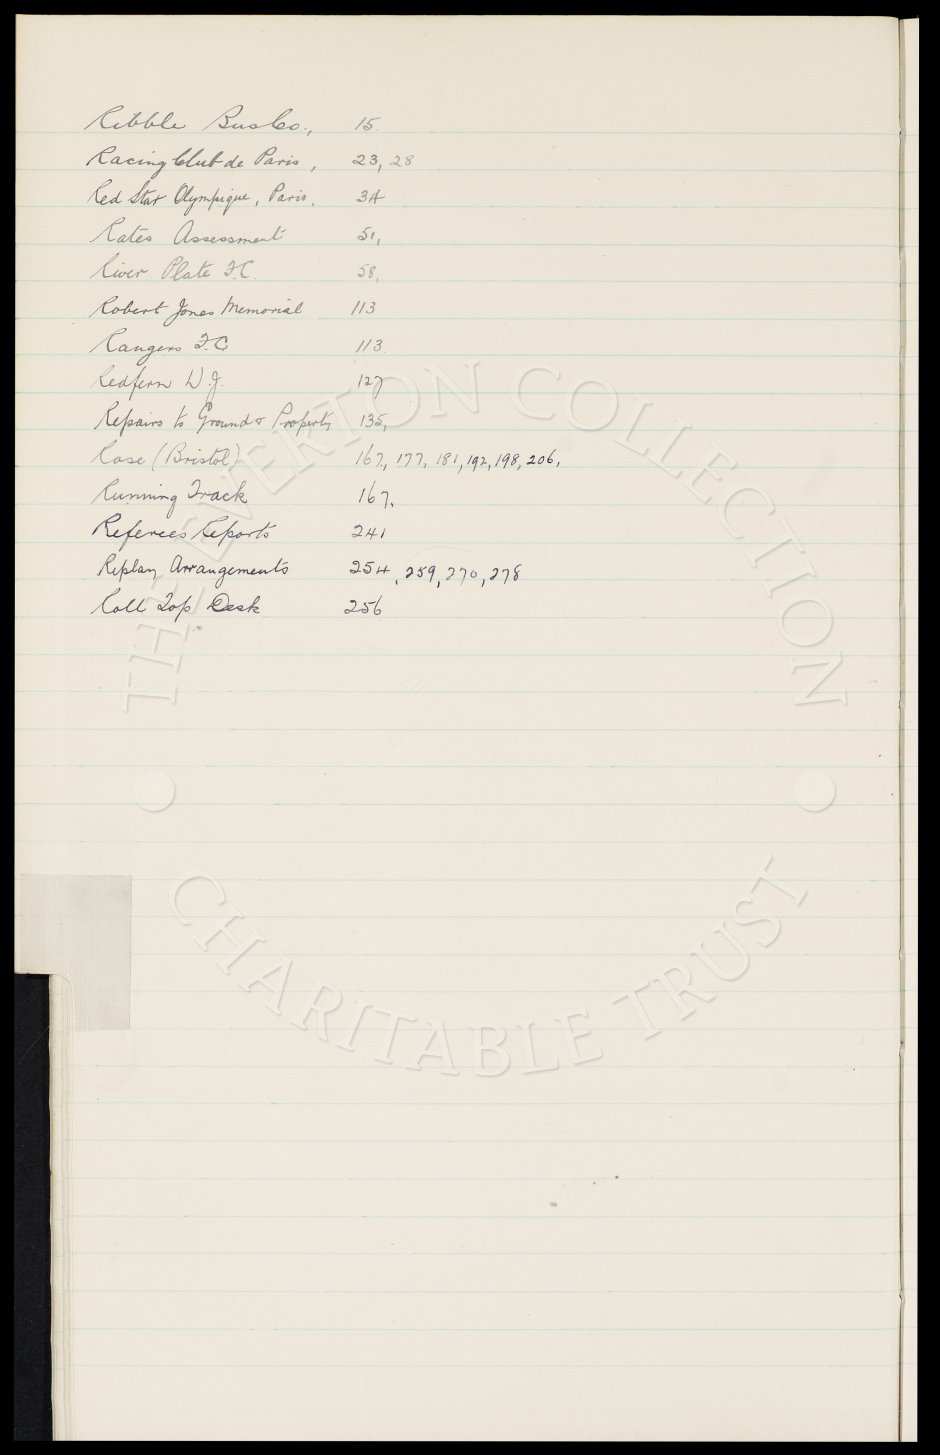 Ribble Bus Co., 15.
Racing Club de Paris, 23, 28
Red Star Olympique, Paris. 34
Rates Assessment 51,
River Plate F.C. 58,
Robert Jones Memorial 113
Rangers F.C. 113.
Redfern W.J. 127
Repairs to Ground & Property 135,
Rose (Bristol) 167, 177, 181, 192, 198, 206,
Running Track 167.
Referees Reports 241
Replay Arrangements 254, 259, 270, 278
Roll Top Desk 256
THE EVERTON COLLECTION
CHARITABLE TRUST